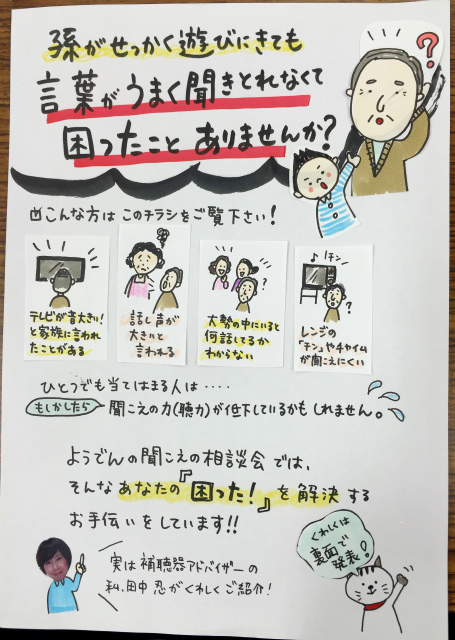 孫がせっかく遊びにきても
言葉がうまく聞きとれなくて
困ったこと ありませんか?
?
こんな方は このチラシをご覧下さい!
テレビが音大きい!
と家族に言われ
たことがある
話し声が
大きいと
言われる
?
大勢の中にいると
何話してるか
わからない
♪ チン!
?
レンジの
「チン」やチャイム
が聞こえにくい
ひとつでも当てはまる人は‥‥
もしかしたら 聞こえの力(聴力)が低下しているかもしれません。
ようでんの聞こえの相談会では、
そんなあなたの『困った!』を解決する
お手伝いをしています!!
実は補聴器アドバイザーの
私、田中 忍がくわしくご紹介!
くわしくは
裏面で
発表!